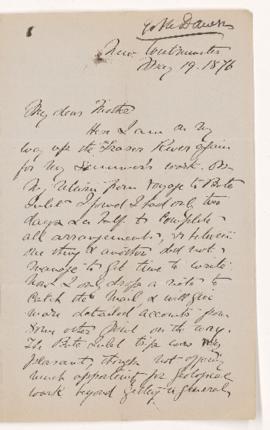 New Westminster
May 19. 1876
My dear Mother
Here I am on my
way up the Fraser River again
for my Summer's work. On
my return from voyage to Bute
Inlet I found I had only two
days & a half to complete
all arrangements, & between
one thing & another did not
manage to get time to write
Now I only drop a note to
catch the mail & will give
more detailed accounts from
some other point on the way.
The Bute Inlet trip was very
pleasant, though not offering
much opportunity for geological
work beyond getting a general